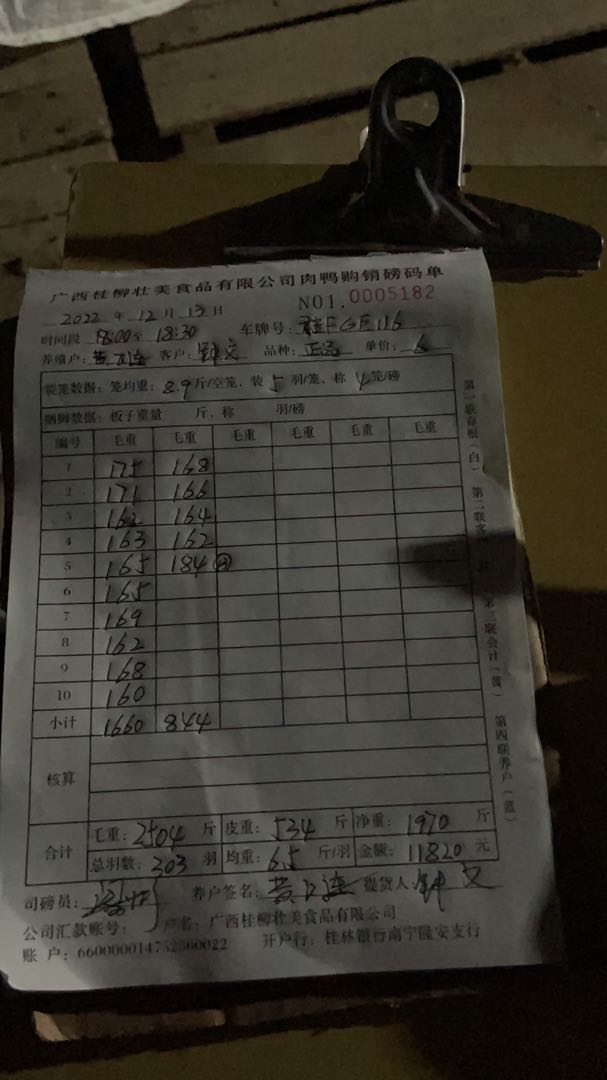 广西桂柳壮美食品有限公司肉鸭购销磅码单
2022 年 12 月 13 日 NO1.0005182
时间段 18:00至 18:30 车牌号: 桂FGF116
养殖户: 黄 连 客户: 钟文 品种: 正品 单价: 6
装笼数据: 笼均重: 8.9斤/空笼, 装 5 羽/笼, 称 4笼/磅
捆脚数据: 板子重量 斤, 称 羽/磅
编号 毛重 毛重 毛重 毛重 毛重 毛重
1 175 168
2 171 166
3 162 164
4 163 162
5 165 184
6 165
7 169
8 162
9 168
10 160
小计 1660 844
核算
合计 毛重: 2504 斤 皮重: 534 斤 净重: 1970 斤
总羽数: 303 羽 均重: 6.5 斤/羽 金额: 11820 元
司磅员: 养户签名: 黄 连 提货人: 钟文
公司汇款账号: 户名: 广西桂柳壮美食品有限公司
账 户: 660000014752500022 开户行: 桂林银行南宁隆安支行
第一联存根(白) 第二联客 第三联会计(黄) 第四联养户(蓝)